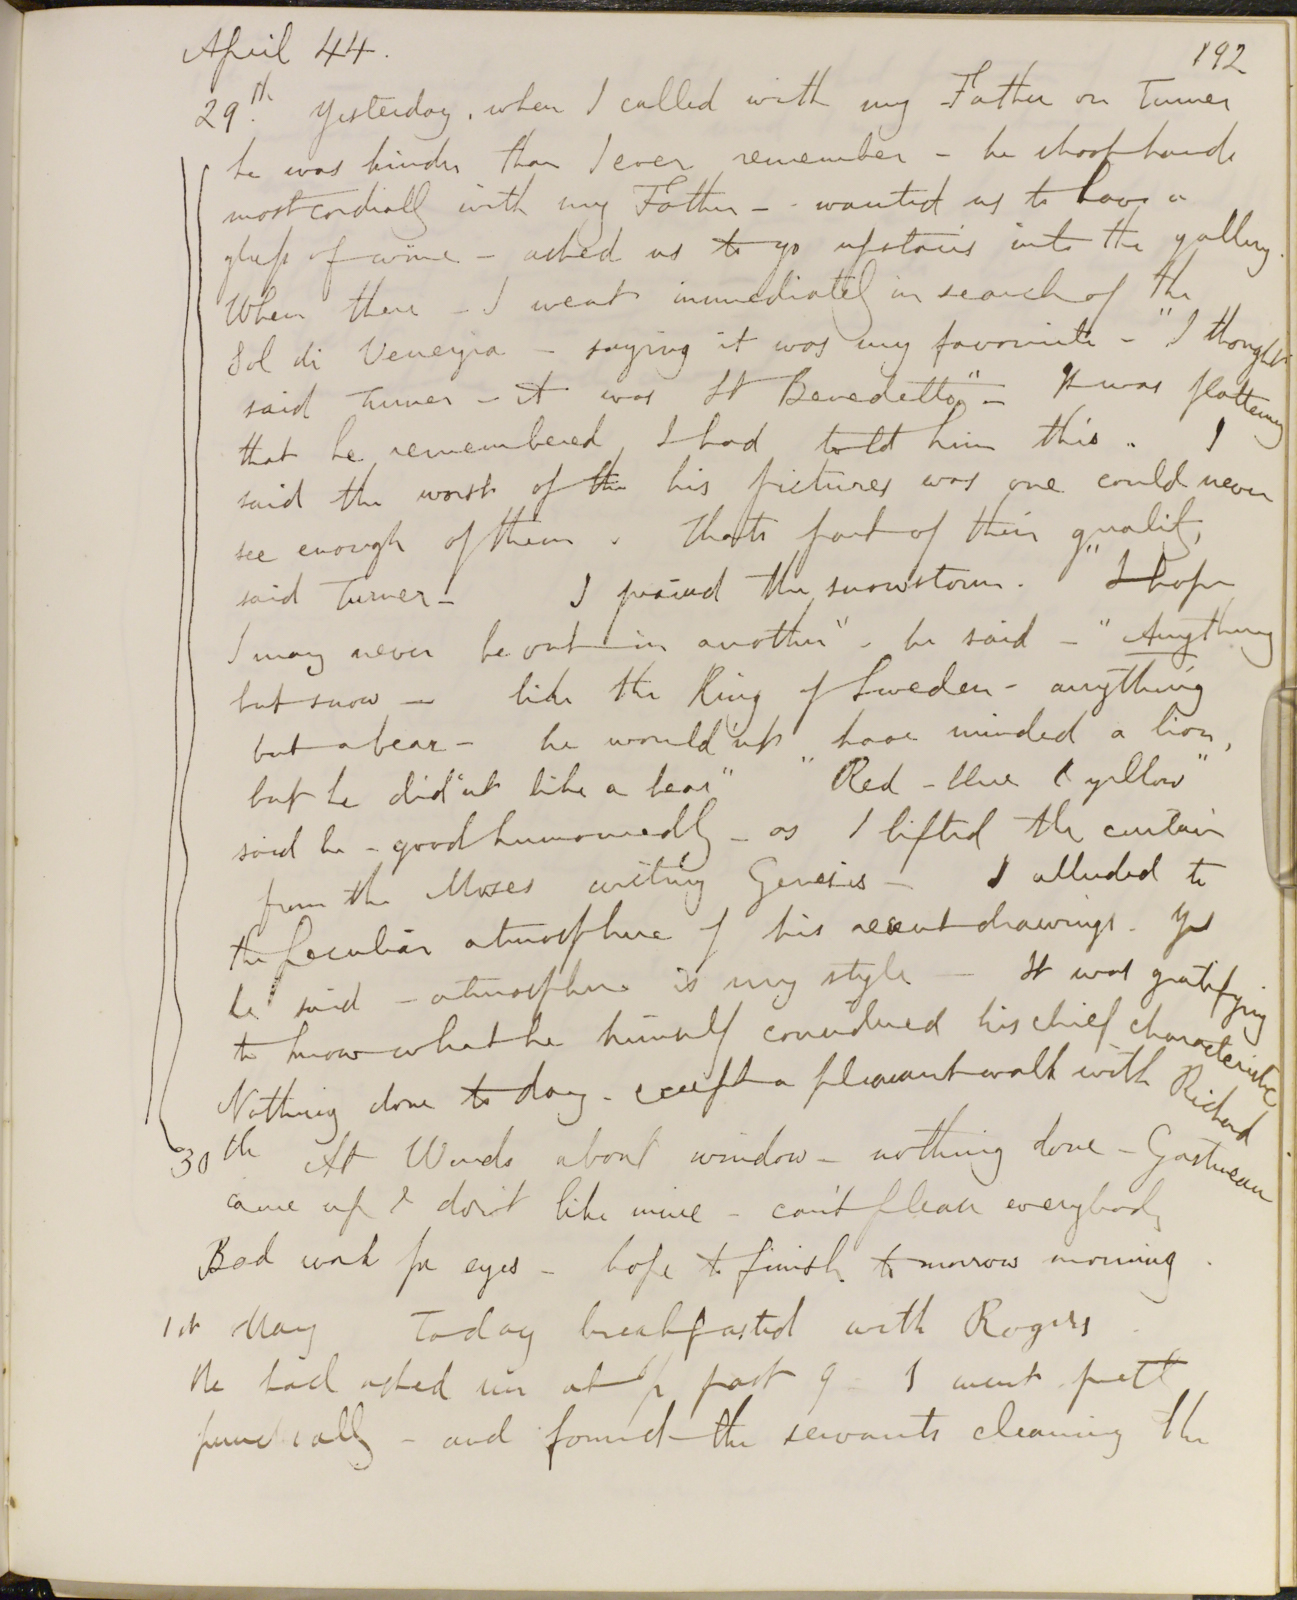 April 44.
192
29th. Yesterday, when I called with my Father on Turner
he was kinder than I ever remember - he shook hands
most cordially with my Father - - wanted us to have a
glass of wine - asked us to go upstairs into the gallery.
When there - I went immediately in search of the
Sol di Venezia - saying it was my favourite - "I thought
said Turner - it was St Benedetto" - It was flattering
that he remembered I had told him this. I
said the worst of the his pictures was one could never
see enough of them. Thats part of their quality,
said Turner - I praised the snowstorm. "I hope
I may never be out in another". he said - "Anything
but snow - like the King of Sweden - anything
but a bear - he would'nt have minded a lion,
but he did'nt like a bear" "Red - blue & yellow"
said he - goodhumouredly - as I lifted the curtain
from the Moses writing Genesis - I alluded to
the peculiar atmosphere of his recent drawings. Yes
he said - atmosphere is my style - It was gratifying
to know what he himself considered his chief characteristic
Nothing done to day - except a pleasant walk with Richard
30th At Wards about window - nothing done - Gastineau
came up & don't like mine - can't please everybody
Bad work for eyes - hope to finish to morrow morning.
1st May Today breakfasted with Rogers.
He had asked me at 1/2 past 9 - I went prett
punctually - and found the servants cleaning the